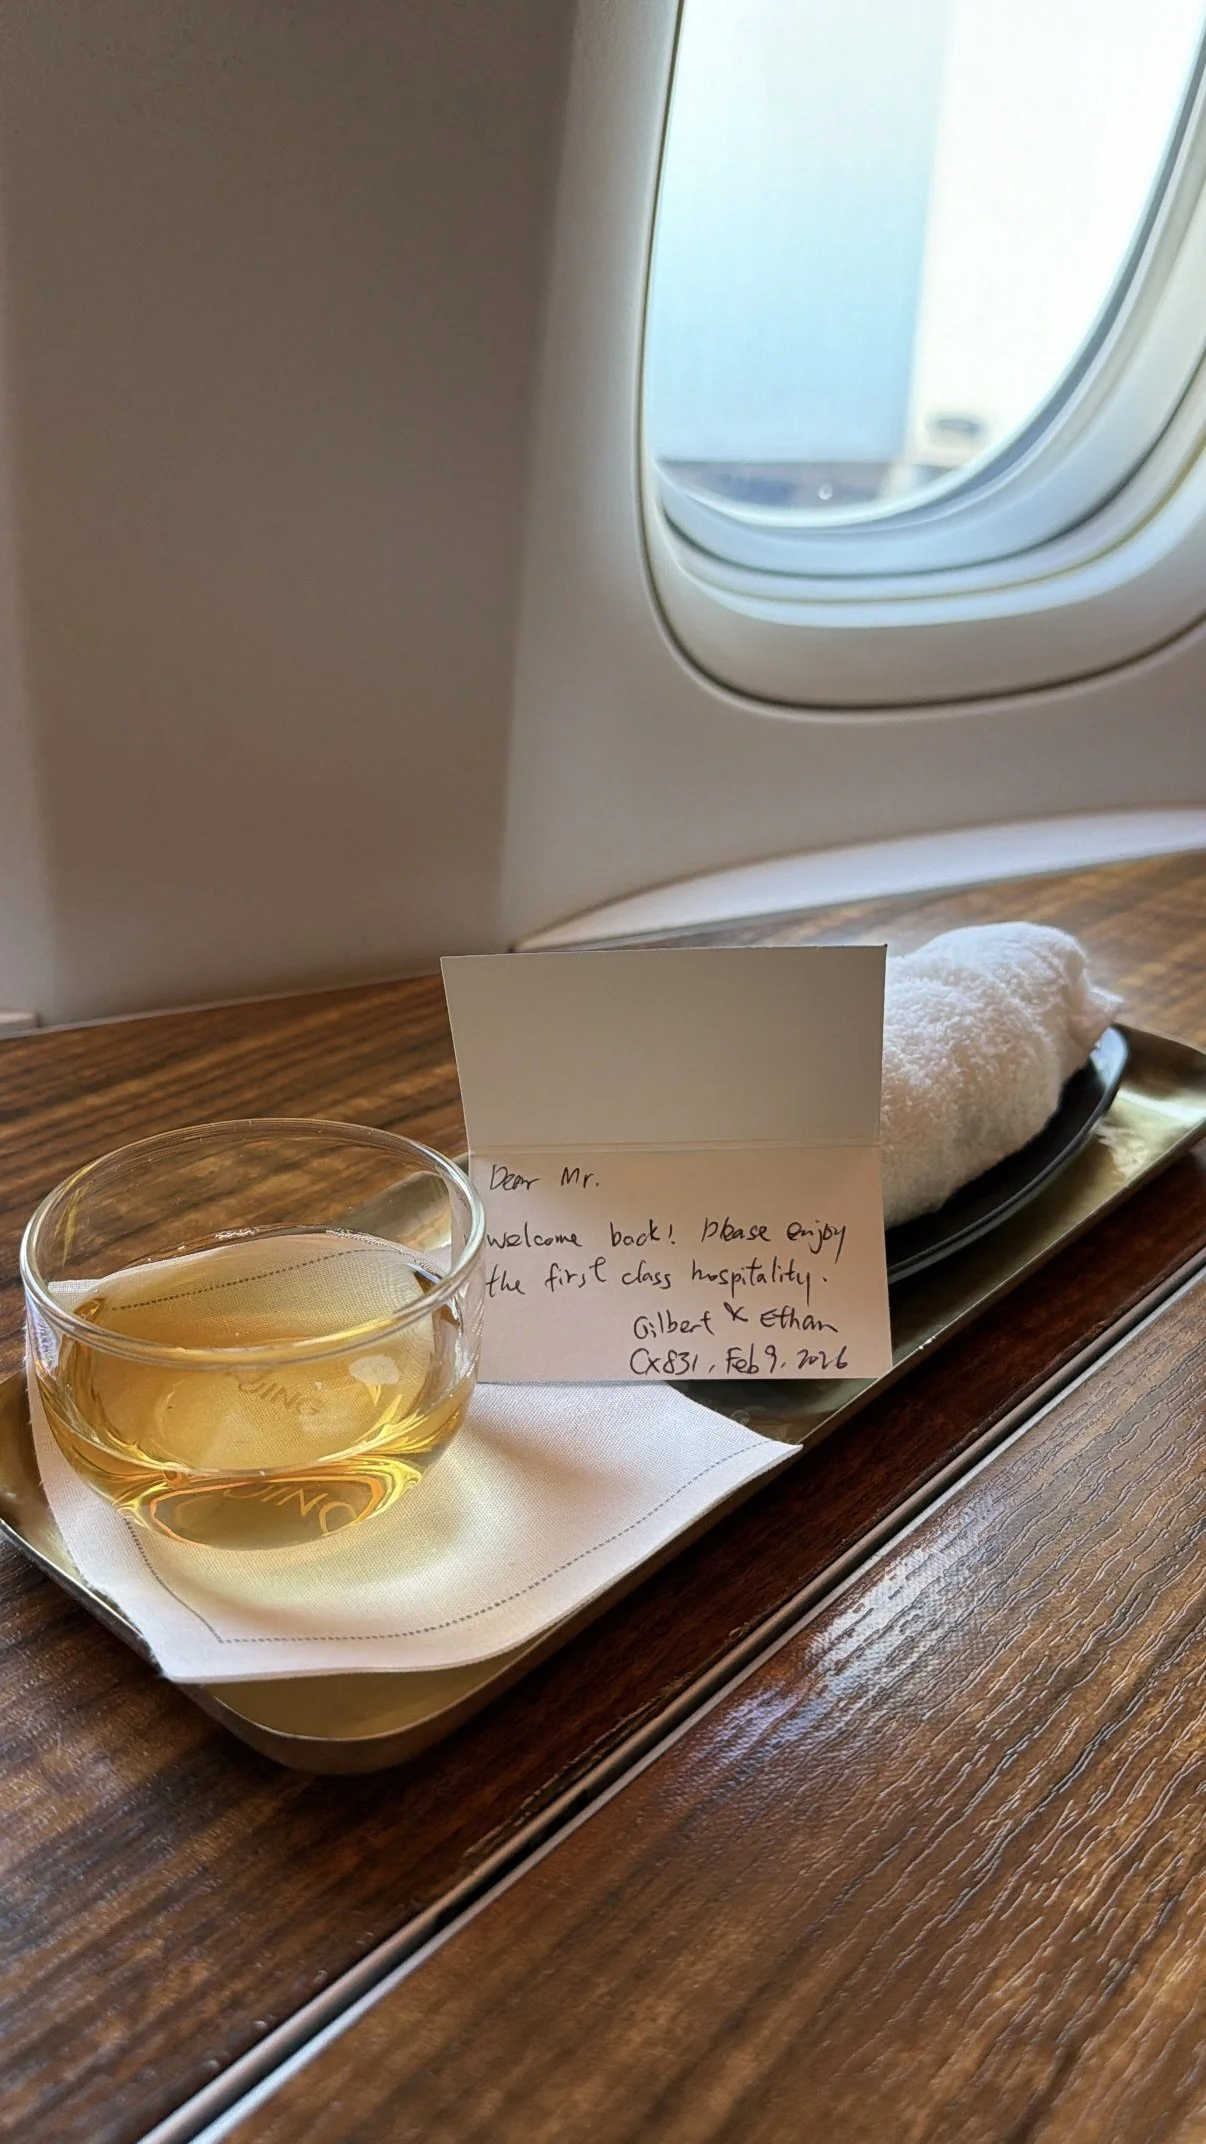 Dear Mr.
welcome back! Please enjoy
the first class hospitality.
Gilbert & Ethan
CX831, Feb 9, 2026
JING